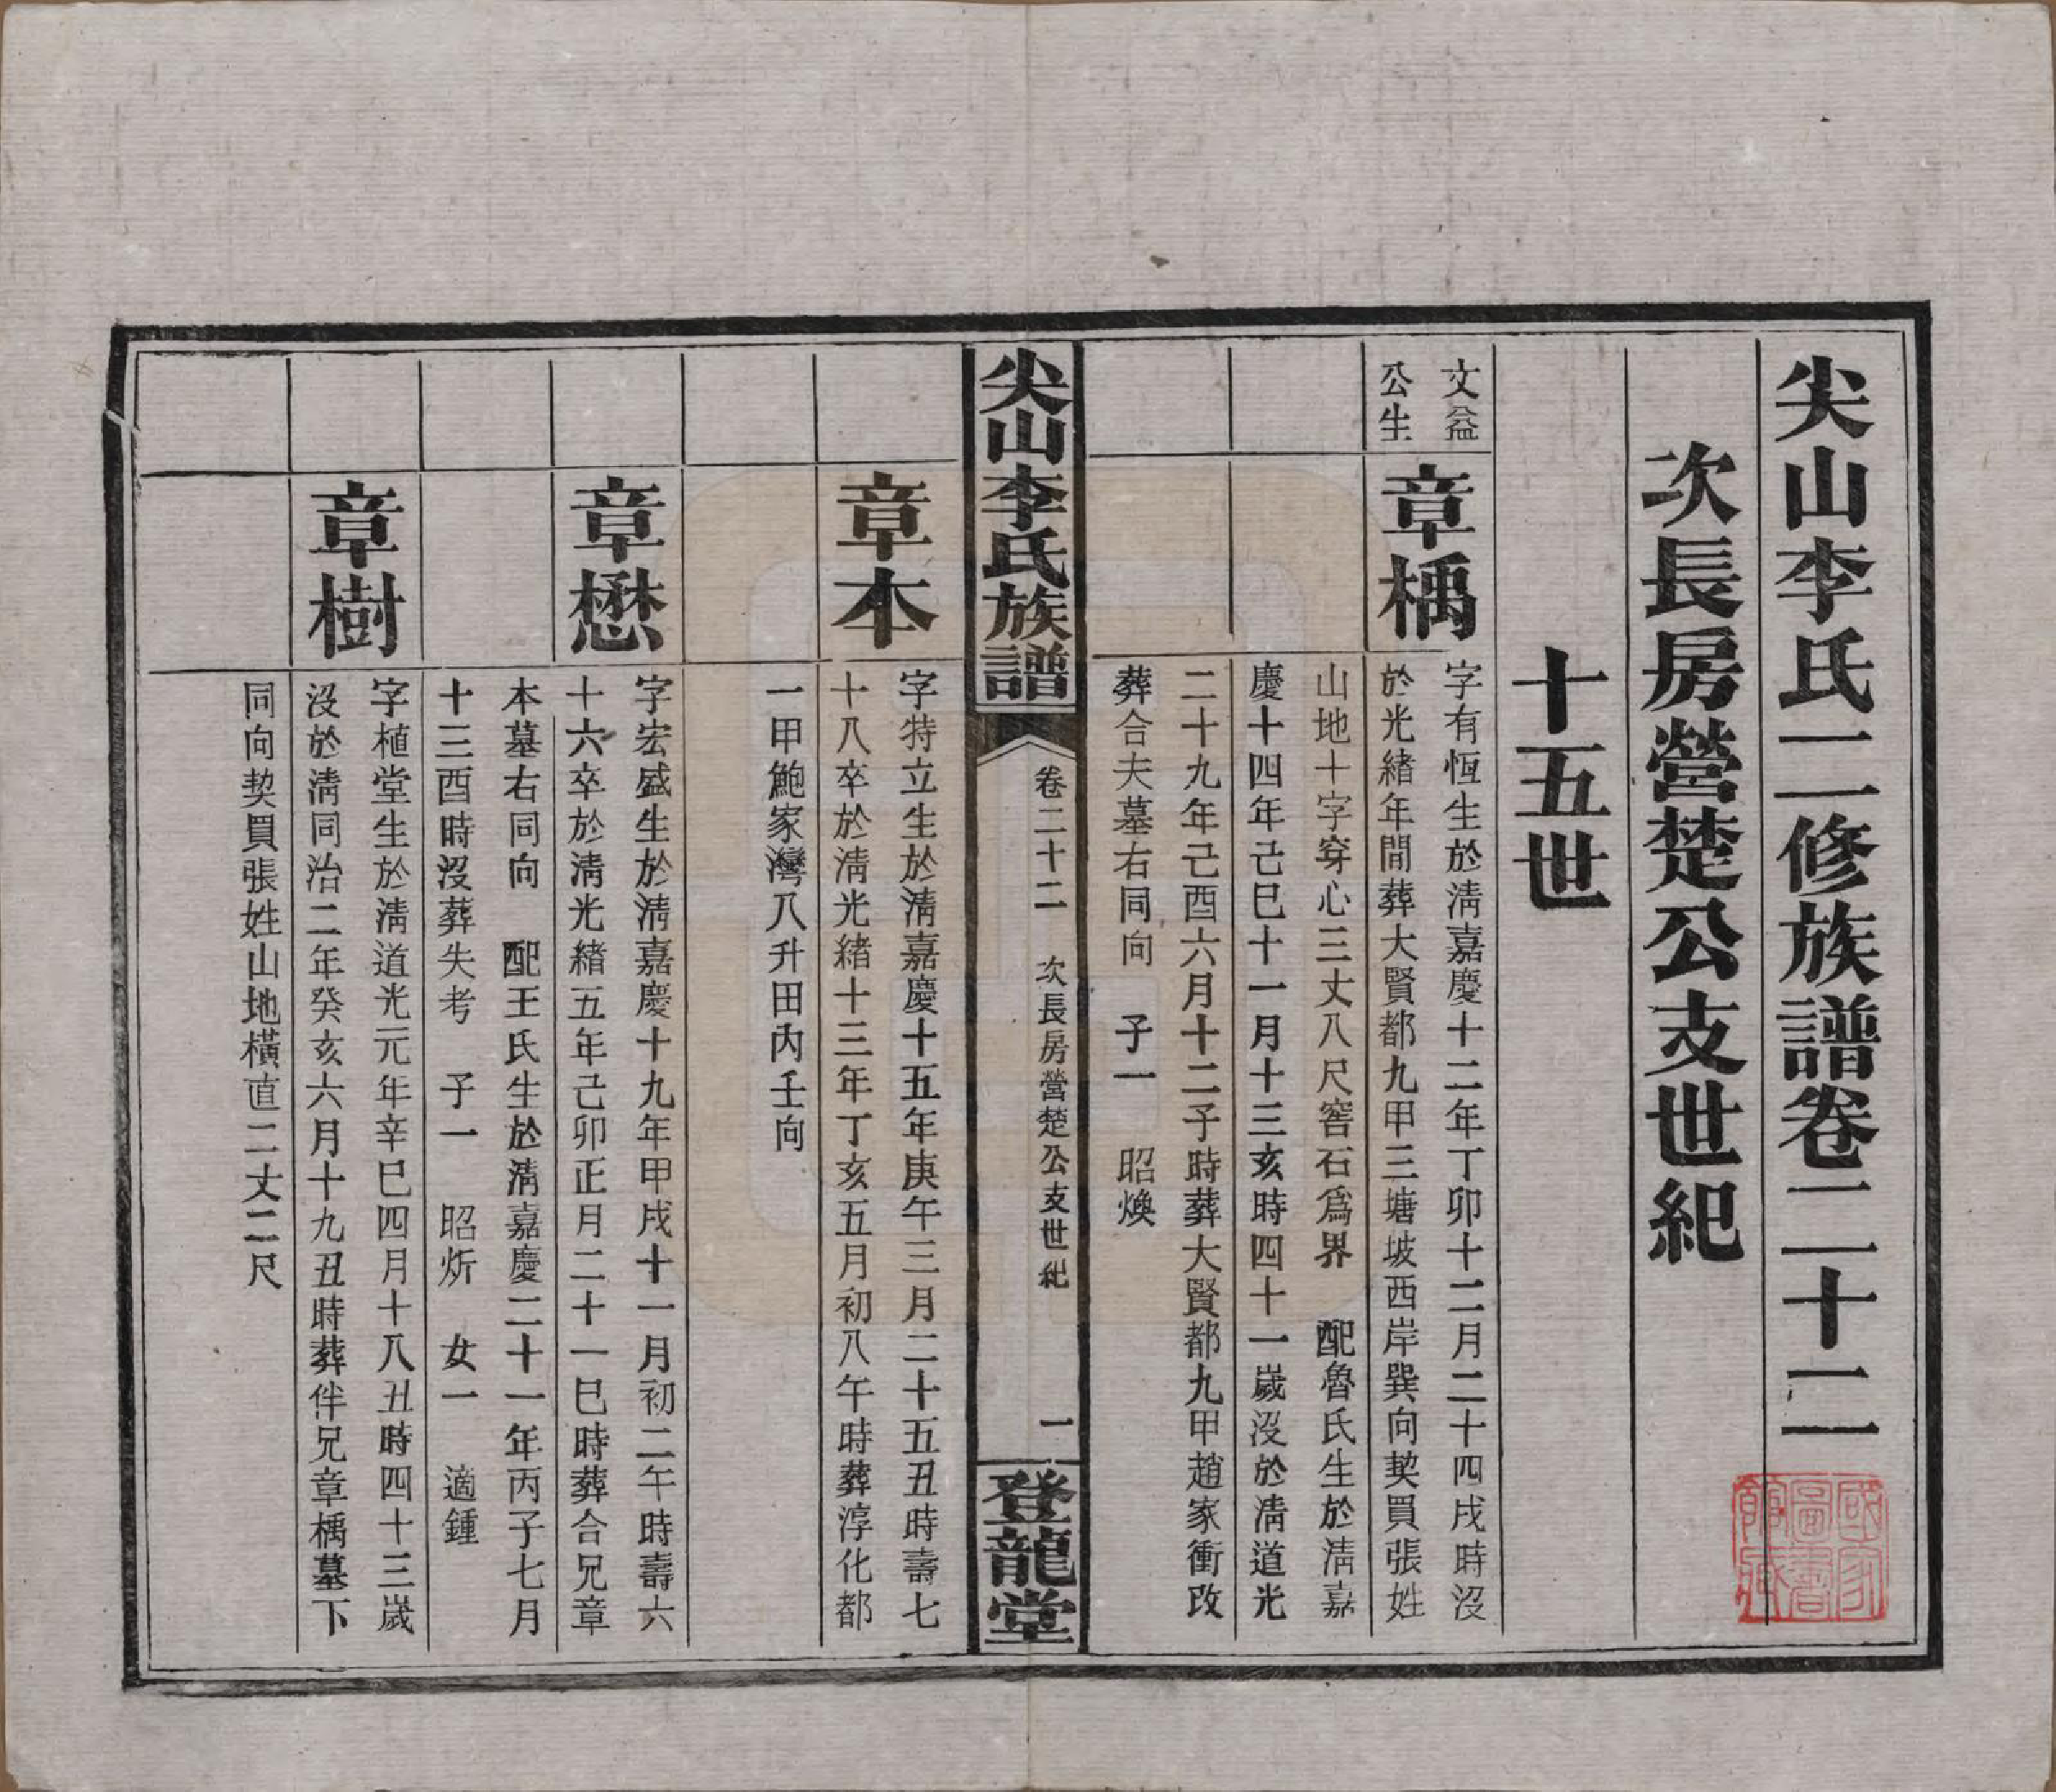 尖山李氏二修族譜卷二十二
次長房營楚公支世紀
十五世
文益
公生
章楀
字有恆生於淸嘉慶十二年丁卯十二月二十四戌時沒
於光緒年間葬大賢都九甲三塘坡西岸巽向契買張姓
山地十字穿心三丈八尺窖石爲界 配魯氏生於淸嘉
慶十四年己巳十一月十三亥時四十一歲沒於淸道光
二十九年己酉六月十二子時葬大賢都九甲趙家衝改
葬合夫墓右同向 子一 昭煥
尖山李氏族譜
卷二十二 次長房營楚公支世紀 一
登龍堂
章本
字特立生於淸嘉慶十五年庚午三月二十五丑時壽七
十八卒於淸光緒十三年丁亥五月初八午時葬淳化都
一甲鮑家灣八升田內壬向
章懋
字宏盛生於淸嘉慶十九年甲戌十一月初二午時壽六
十六卒於淸光緒五年己卯正月二十一巳時葬合兄章
本墓右同向 配王氏生於淸嘉慶二十一年丙子七月
十三酉時沒葬失考 子一 昭炘 女一 適鍾
章樹
字植堂生於淸道光元年辛巳四月十八丑時四十三歲
沒於淸同治二年癸亥六月十九丑時葬伴兄章楀墓下
同向契買張姓山地橫直二丈二尺
國家圖書館藏